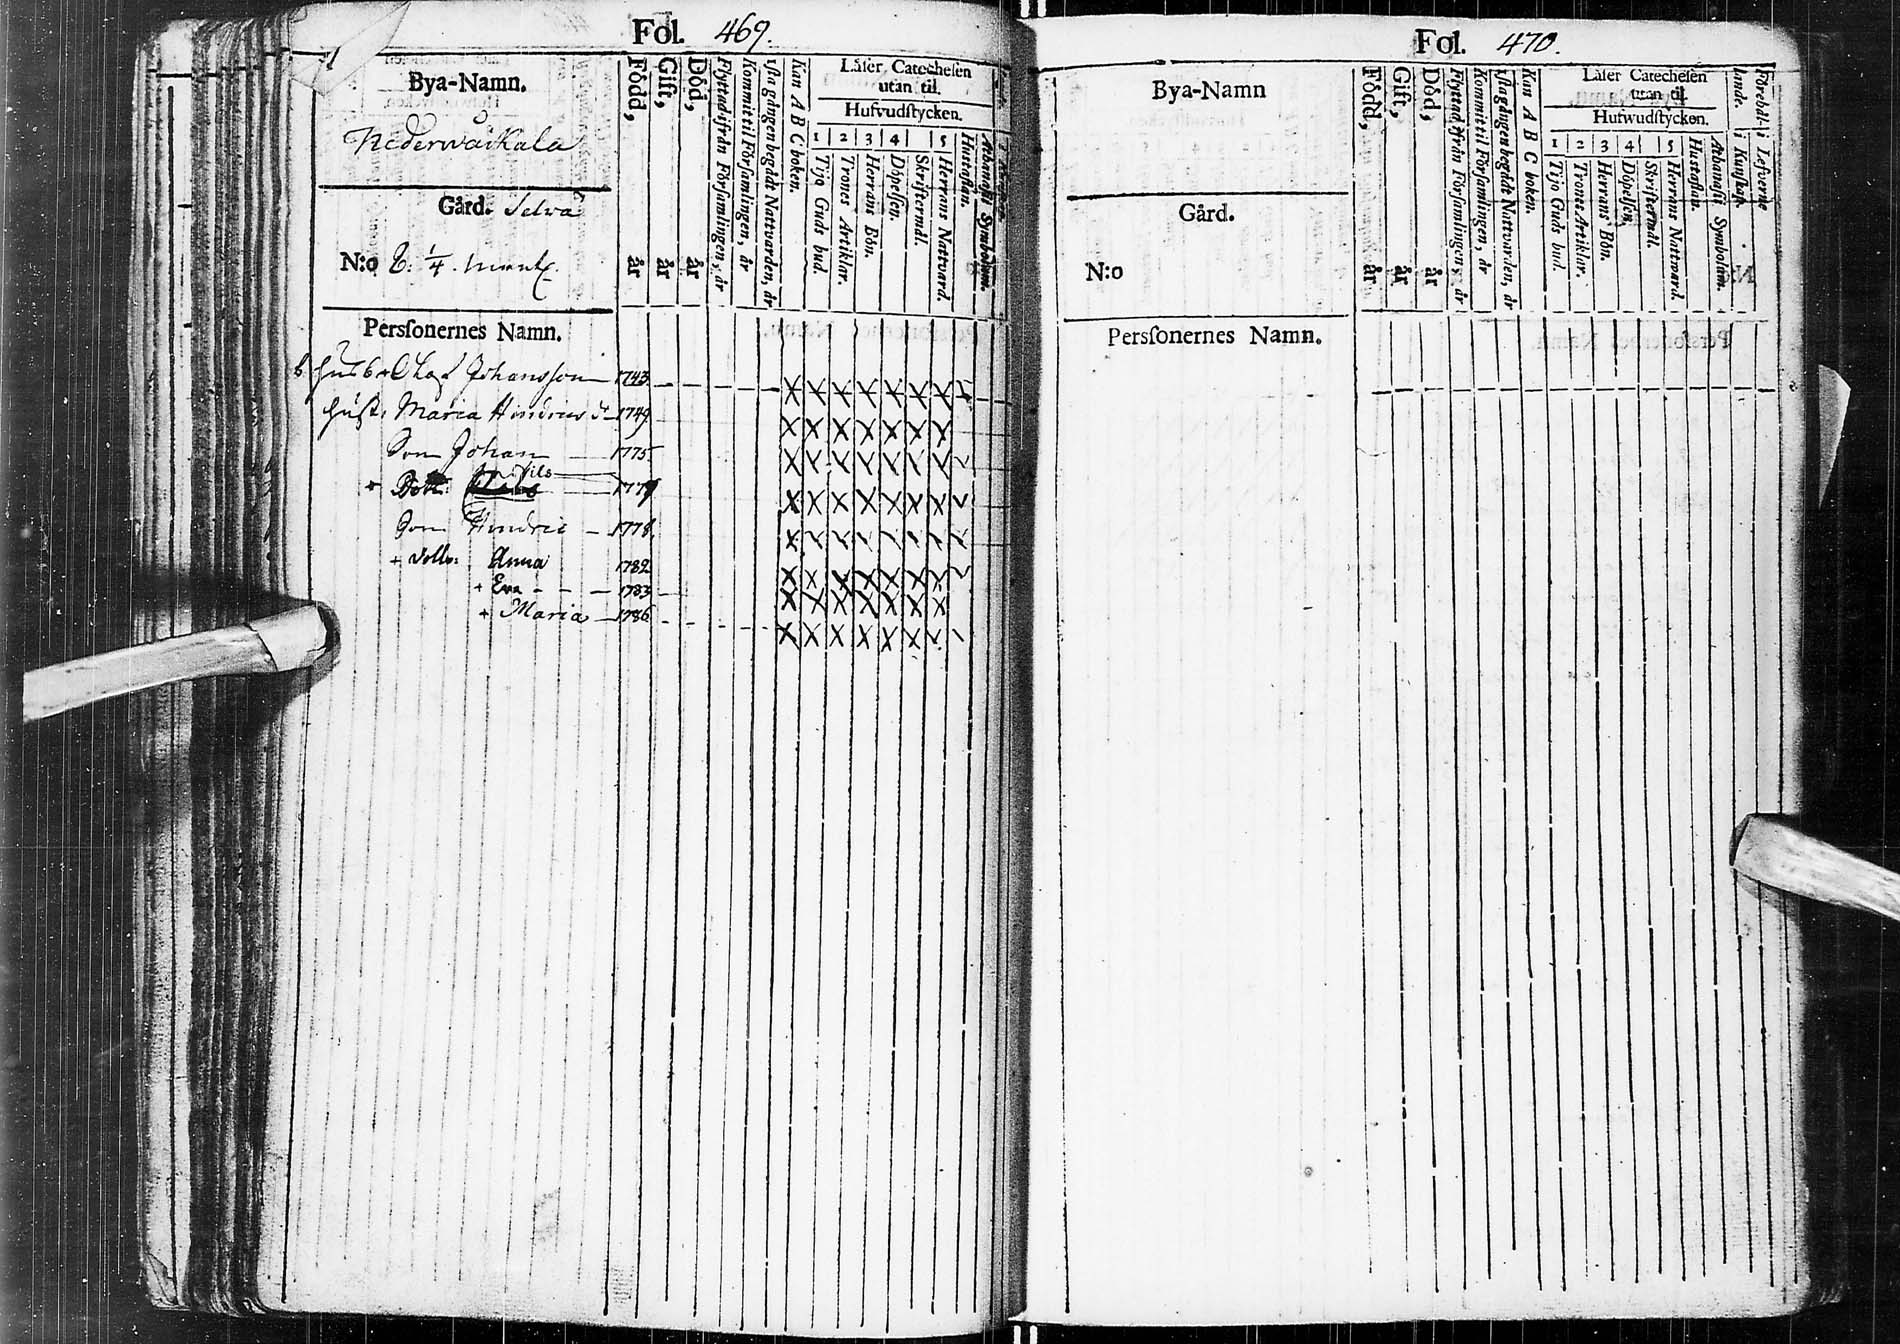 Fol. 469.
Bya-Namn.
Nederwäikala
Gård. Selva
N:o 8. 1/4. Mantl.
Född, år
Gift, år
Död, år
Flyttad ifrån Församlingen, år
Kommit til Församlingen, år
1sta gången begådt Nattvarden, år
Kan A B C boken.
Läser Catechesen
utan til.
Hufvudstycken.
1 2 3 4 5
Tijo Guds bud.
Trones Artiklar.
Herrans Bön.
Döpelsen.
Skriftermål.
Herrans Nattvard.
Hustaflan.
Athanasii Symbolum.
Personernes Namn.
Olof Johansson 1743
Hust. Maria Hindrics d. 1749
Son Johan 1775
+ Dott. 1777
Son Hindric 1778
+ Dottr: Anna 1782
+ Eva - - - 1783
+ Maria 1786
Fol. 470.
Bya-Namn
Gård.
N:o
Född, år
Gift, år
Död, år
Flyttad ifrån Församlingen, år
Kommit til Församlingen, år
1sta gången begådt Nattvarden, år
Kan A B C boken.
Läser Catechesen
utan til.
Hufwudstycken.
1 2 3 4 5
Tijo Guds bud.
Trones Artiklar.
Herrans Bön.
Döpelsen,
Skriftermål.
Herrans Natward.
Hustaflan.
Athanasii Symbolum.
i Kunskap.
i Lefverne
Personernes Namn.